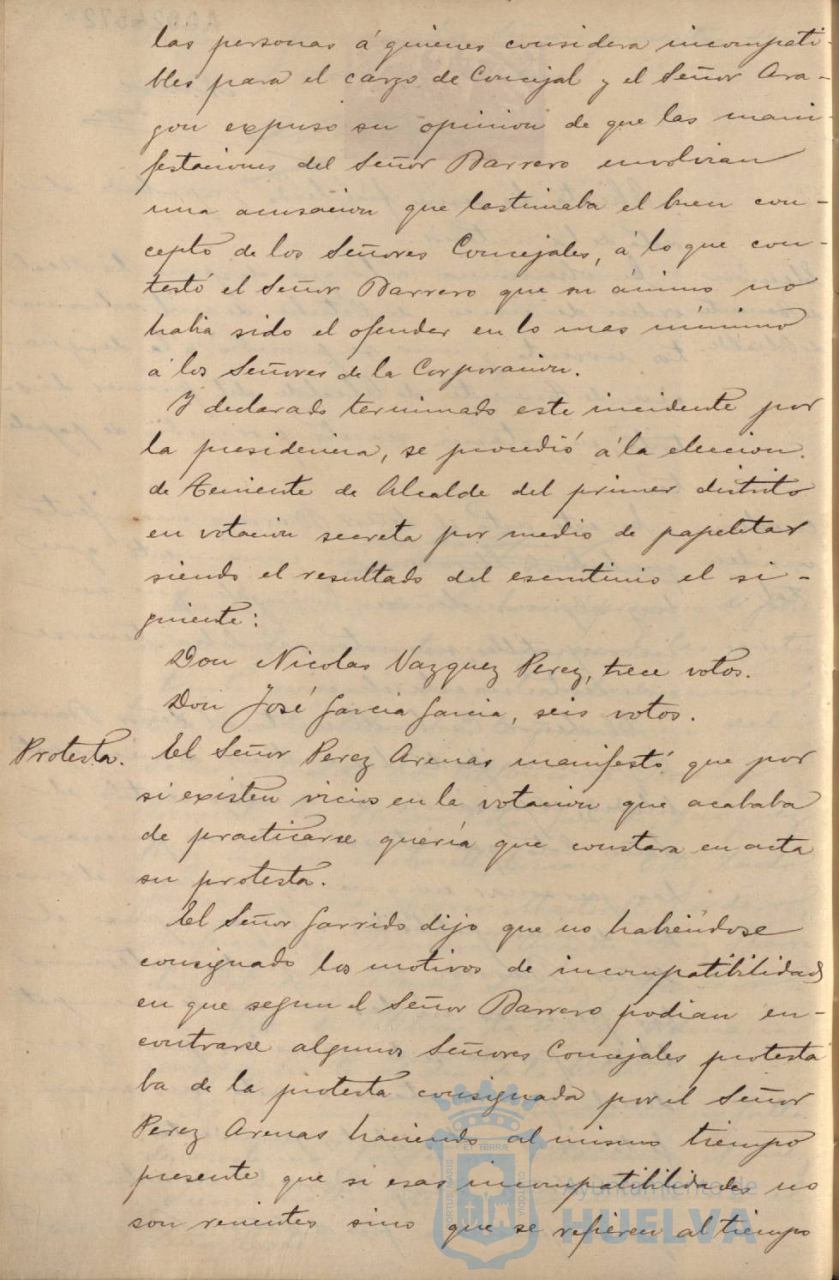 las personas á quienes considera incompati-
bles para el cargo de Concejal y el Señor Ara-
gon expuso su opinion de que las mani-
festaciones del Señor Barrero envolvian
una acusacion que lastimaba el buen con-
cepto de los Señores Concejales, á lo que con-
testó el Señor Barrero que su ánimo no
habia sido el ofender en lo mas mínimo
á los Señores de la Corporacion.
Y declarado terminado este incidente por
la presidencia, se procedió á la eleccion
de Teniente de Alcalde del primer distrito
en votacion secreta por medio de papeletas
siendo el resultado del escrutinio el si-
guiente:
Don Nicolas Vazquez Perez, trece votos.
Don José Garcia Garcia, seis votos.
Protesta. El Señor Perez Arenas manifestó que por
si existen vicios en la votacion que acababa
de practicarse quería que constara en acta
su protesta.
El Señor Garrido dijo que no habiéndose
consignado los motivos de incompatibilidad
en que segun el Señor Barrero podian en-
contrarse algunos Señores Concejales protesta
ba de la protesta consignada por el Señor
Perez Arenas haciendo al mismo tiempo
presente que si esas incompatibilidades no
son recientes sino que se refieren al tiempo
Ayuntamiento de
HUELVA